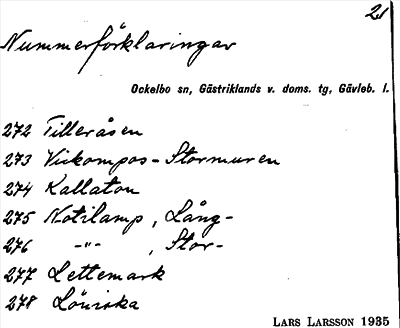 21
Nummerförklaringar
Ockelbo sn, Gästriklands v. doms. tg, Gävleb. l.
272 Tilleråsen
273 Vickompos-Stormuren
274 Kallaton
275 Notilamp, Lång-
276 -"- , Stor-
277 Lettemark
278 Löniska
LARS LARSSON 1935